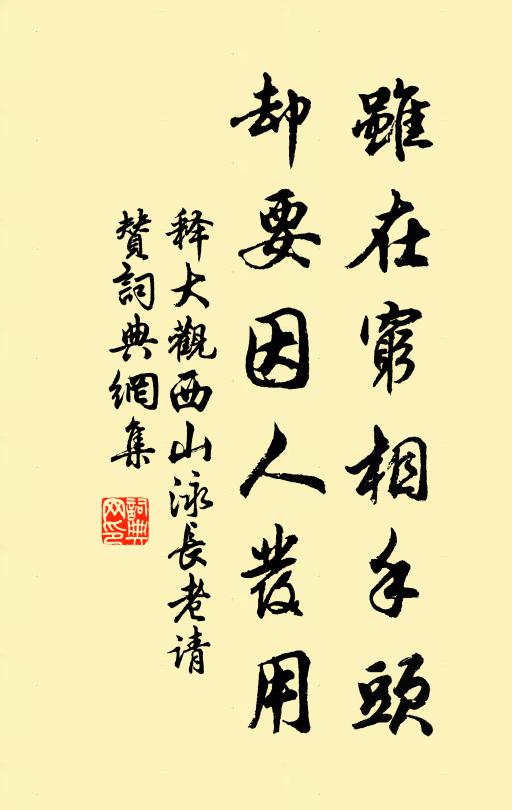 雖在窮相手頭
却要因人發用
释大觀西山泳長老请
贊詞典網集
詞典网印